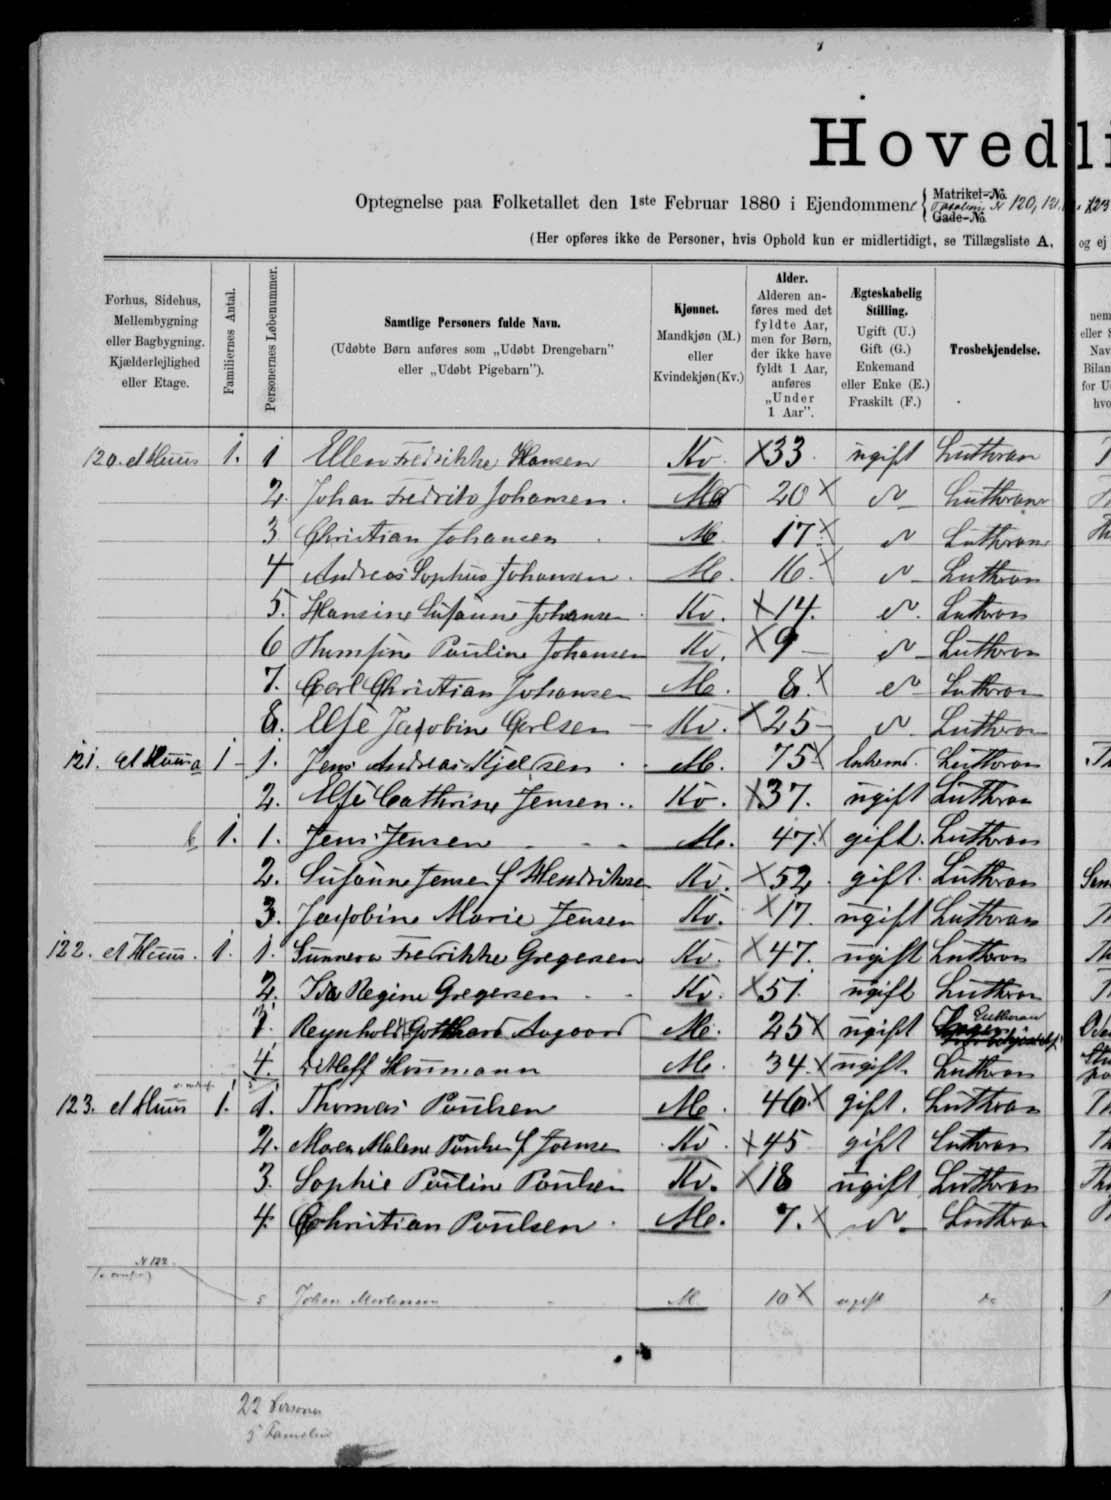 Hovedli
Optegnelse paa Folketallet den 1ste Februar 1880 i Ejendommene { Matrikel-No. Gade-No. No 120, 121, 123
(Her opføres ikke de Personer, hvis Ophold kun er midlertidigt, se Tillægsliste A, og ej
Forhus, Sidehus, Mellembygning eller Bagbygning. Kjælderlejlighed eller Etage.
Familiernes Antal.
Personernes Løbenummer.
Samtlige Personers fulde Navn.
(Udøbte Børn anføres som „Udøbt Drengebarn"
eller „Udøbt Pigebarn").
Kjønnet.
Mandkjøn (M.)
eller
Kvindekjøn (Kv.)
Alder.
Alderen an-
føres med det
fyldte Aar,
men for Børn,
der ikke have
fyldt 1 Aar,
anføres
„Under
1 Aar".
Ægteskabelig
Stilling.
Ugift (U.)
Gift (G.)
Enkemand
eller Enke (E.)
Fraskilt (F.)
Trosbekjendelse.
120. et Huus 1. 1 Ellen Fredrikke Hansen Kv. X33. ugift Lutheran
2. Johan Fredrik Johansen. M 20 X do Lutheran
3 Christian Johansen M. 17. X do Lutheran
4 Andreas Sophus Johansen. M. 16. X do Lutheran
5. Hansine Susanne Johansen Kv. X14. do. Lutheran
6 Thomsine Pouline Johansen Kv. X9 do Lutheran
7. Carl Christian Johansen M. 8. X do Lutheran
8. Else Jacobine Carlsen Kv. X25 do Lutheran
121. et Huus a 1 1. Jens Andreas Kjeldsen M. 75. X Enkemd. Lutheran
2. Else Cathrine Jensen.. Kv. X37. ugift Lutheran
b 1. 1. Jens Jensen M. 47. X gift. Lutheran
2. Susanne Jensen f Hendriksen Kv. X52. gift. Lutheran
3. Jacobine Marie Jensen Kv. X17. ugift Lutheran
122. et Huus. 1. 1. Sunneva Fredrikke Gregersen Kv. X47. ugift Lutheran
2. Ida Regine Gregersen Kv. X51. ugift Lutheran
3. Reynhold Gotthard Aagaard M. 25 X ugift Lutheran
4. Ditleff Hounmann M. 34. X ugift. Lutheran
123. et Huus 1. 1. Thomas Poulsen M. 46. X gift. Lutheran
2. Maren Malene Poulsen f Joensen Kv. X45 gift Lutheran
3. Sophie Pouline Poulsen Kv. X18 ugift Lutheran
4. Christian Poulsen. M. 7. X do Lutheran
N 122.
5 Johan Mortensen M 10 X ugift do
22 Personer
5 Familier